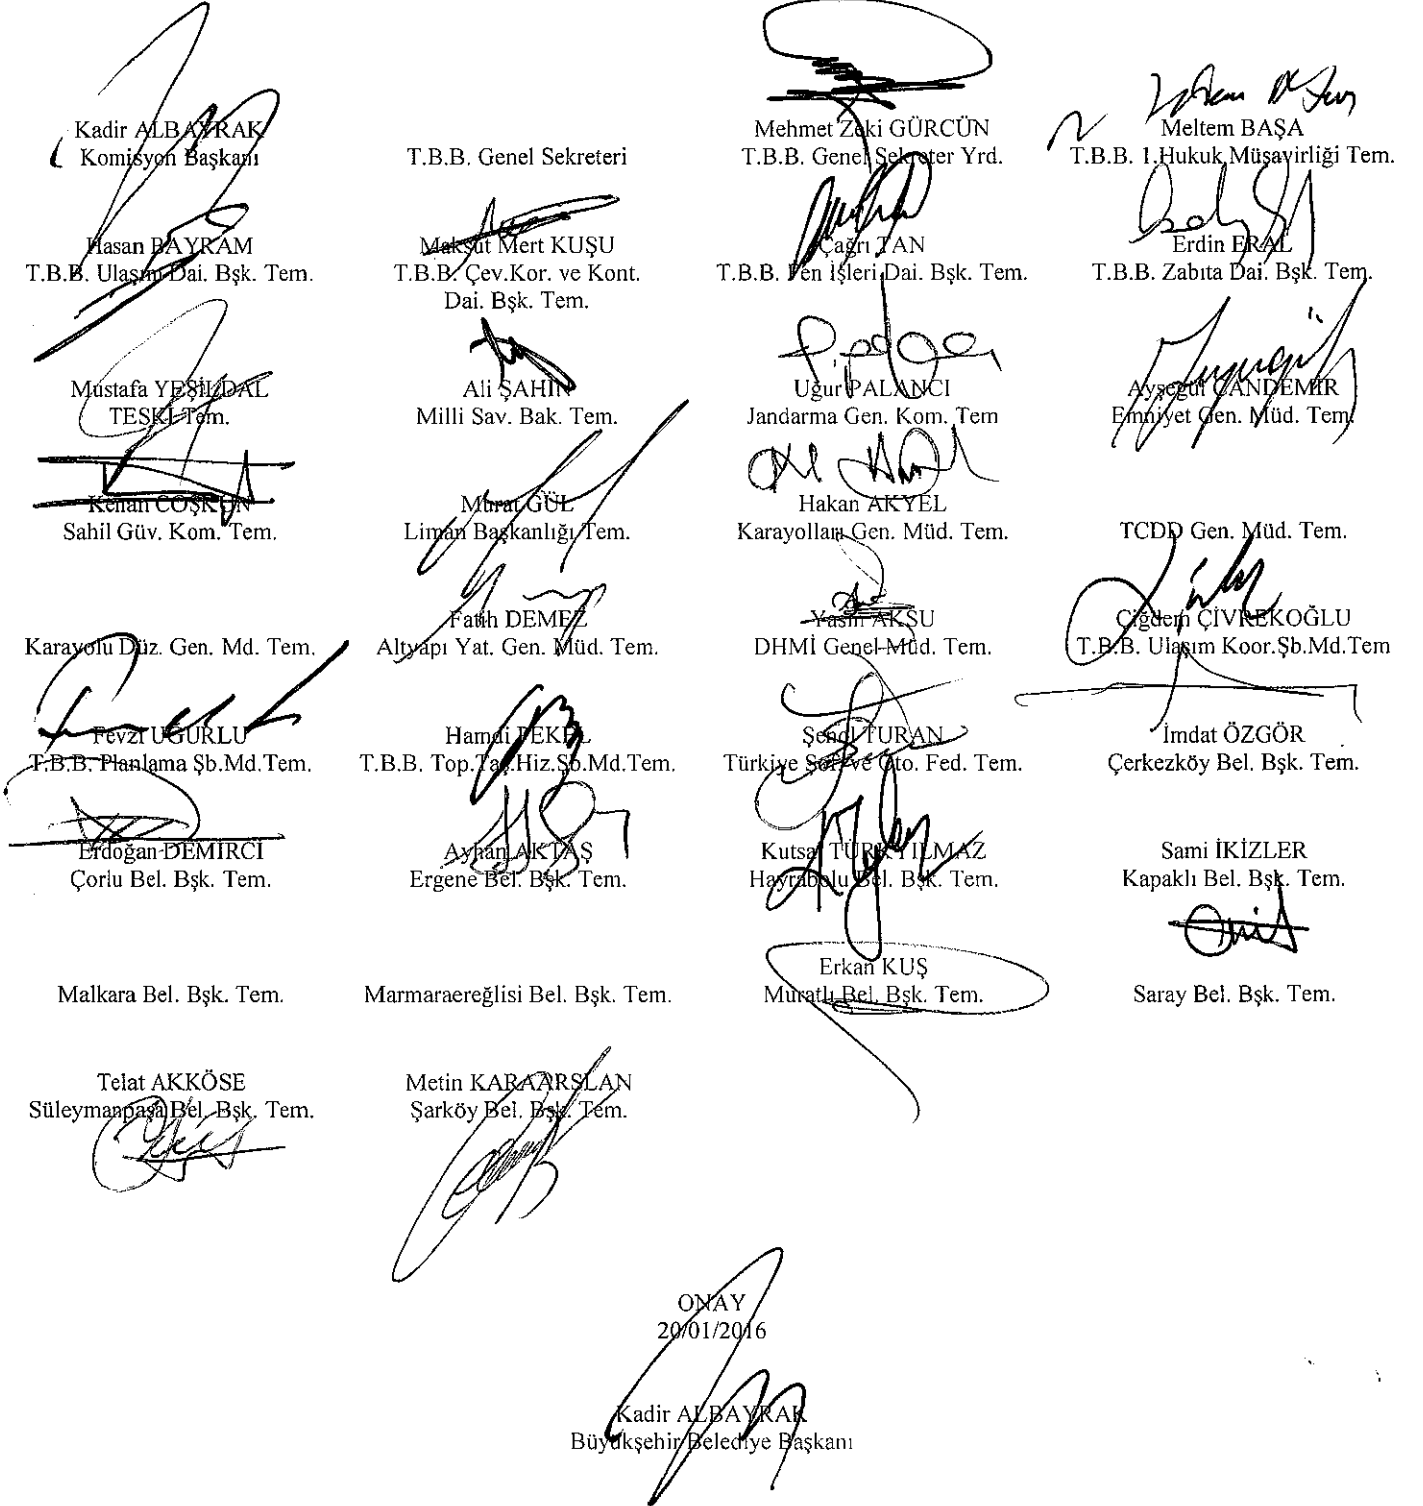 Kadir ALBAYRAK
Komisyon Başkanı
T.B.B. Genel Sekreteri
Mehmet Zeki GÜRCÜN
T.B.B. Genel Sekreter Yrd.
Meltem BAŞA
T.B.B. 1.Hukuk Müşavirliği Tem.
Hasan BAYRAM
T.B.B. Ulaşım Dai. Bşk. Tem.
Maksut Mert KUŞU
T.B.B. Çev.Kor. ve Kont.
Dai. Bşk. Tem.
Çağrı TAN
T.B.B. Fen İşleri Dai. Bşk. Tem.
Erdin ERAL
T.B.B. Zabıta Dai. Bşk. Tem.
Mustafa YEŞİLDAL
TESKİ Tem.
Ali ŞAHİN
Milli Sav. Bak. Tem.
Uğur PALANCI
Jandarma Gen. Kom. Tem
Ayşegül CANDEMİR
Emniyet Gen. Müd. Tem.
Kenan COŞKUN
Sahil Güv. Kom. Tem.
Murat GÜL
Liman Başkanlığı Tem.
Hakan AKYEL
Karayolları Gen. Müd. Tem.
TCDD Gen. Müd. Tem.
Karayolu Düz. Gen. Md. Tem.
Fatih DEMEZ
Altyapı Yat. Gen. Müd. Tem.
Yasin AKSU
DHMİ Genel Müd. Tem.
Çiğdem ÇİVREKOĞLU
T.B.B. Ulaşım Koor.Şb.Md.Tem
Fevzi UĞURLU
T.B.B. Planlama Şb.Md.Tem.
Hamdi PEKEL
T.B.B. Top.Taş.Hiz.Şb.Md.Tem.
Şenol TURAN
Türkiye Şof. ve Oto. Fed. Tem.
İmdat ÖZGÖR
Çerkezköy Bel. Bşk. Tem.
Erdoğan DEMİRCİ
Çorlu Bel. Bşk. Tem.
Ayhan AKTAŞ
Ergene Bel. Bşk. Tem.
Kutsal TÜRKYILMAZ
Hayrabolu Bel. Bşk. Tem.
Sami İKİZLER
Kapaklı Bel. Bşk. Tem.
Malkara Bel. Bşk. Tem.
Marmaraereğlisi Bel. Bşk. Tem.
Erkan KUŞ
Muratlı Bel. Bşk. Tem.
Saray Bel. Bşk. Tem.
Telat AKKÖSE
Süleymanpaşa Bel. Bşk. Tem.
Metin KARAARSLAN
Şarköy Bel. Bşk. Tem.
ONAY
20/01/2016
Kadir ALBAYRAK
Büyükşehir Belediye Başkanı